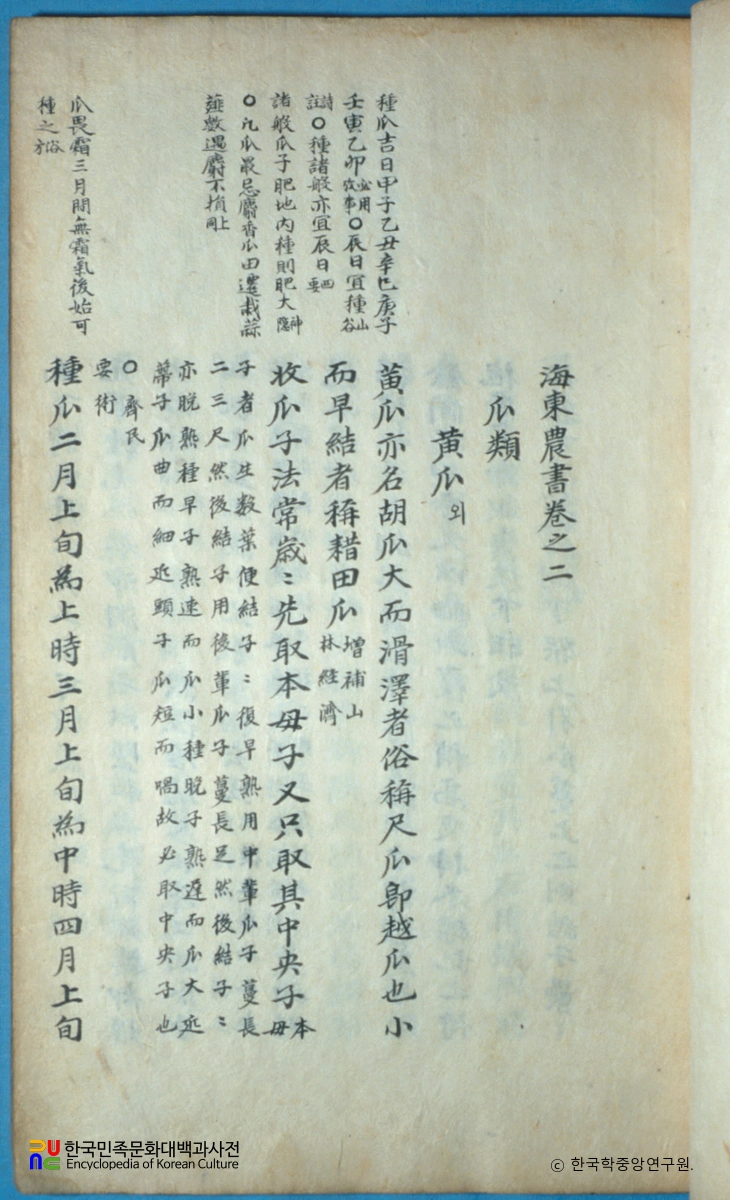 種瓜吉日甲子乙丑辛巳庚子
壬寅乙卯必用攷事○辰日宜種山谷
詩註○種諸般亦宜辰日四要
諸般瓜子肥地內種則肥大神隱
○凡瓜最忌麝香瓜田邊栽蒜
薤數遇麝不損同上
瓜畏霜三月間無霜氣後始可
種之俗方
海東農書卷之二
瓜類
黃瓜외
黃瓜亦名胡瓜大而滑澤者俗稱尺瓜卽越瓜也小
而早結者稱耤田瓜增補山林經濟
收瓜子法常歲〻先取本母子又只取其中央子本母
子者瓜生数葉便結子〻復早熟用中軰瓜子蔓長
二三尺然後結子用後軰瓜子蔓長足然後結子〻
亦晚熟種早子熟速而瓜小種晚子熟遲而瓜大近
蔕子瓜曲而細近頭子瓜短而喎故必取中央子也
○齊民
要術
種瓜二月上旬爲上時三月上旬爲中時四月上旬
한국민족문화대백과사전
Encyclopedia of Korean Culture
© 한국학중앙연구원.